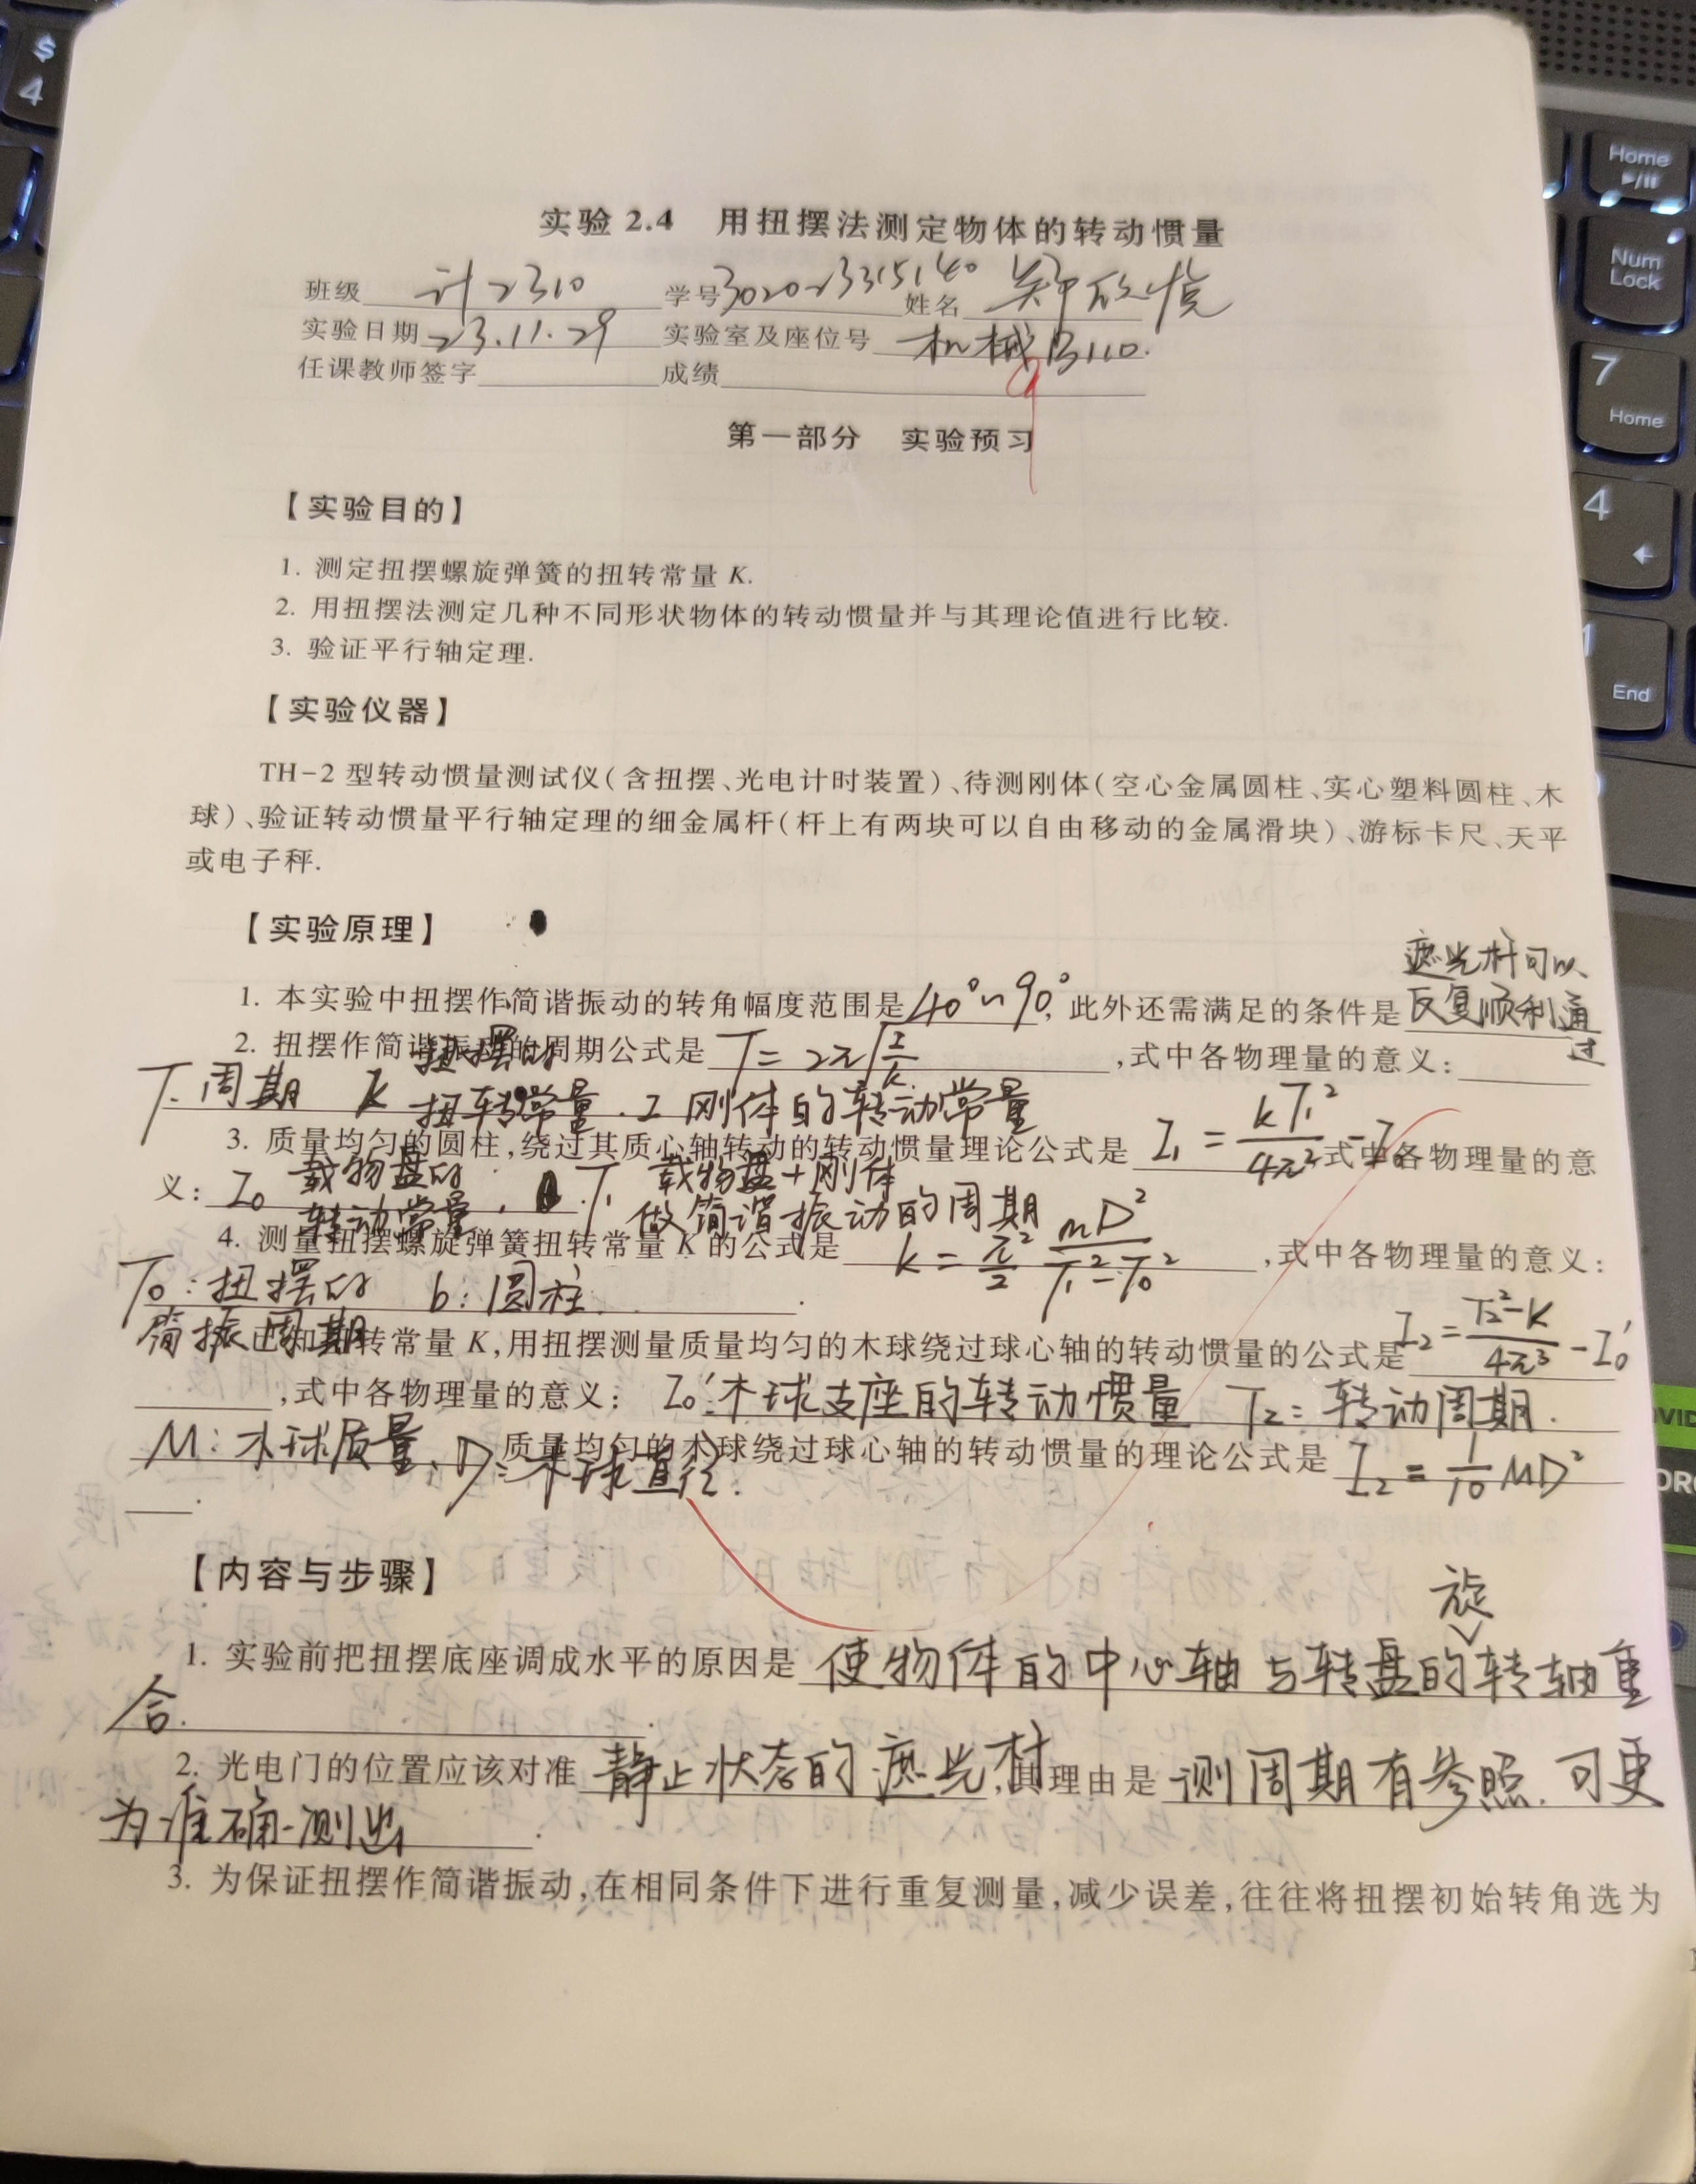 实验 2.4 用扭摆法测定物体的转动惯量
班级 计2310 学号3020233315140 姓名
实验日期 23.11.29 实验室及座位号 机械B110.
任课教师签字 成绩
9
第一部分 实验预习
【实验目的】
1. 测定扭摆螺旋弹簧的扭转常量 K.
2. 用扭摆法测定几种不同形状物体的转动惯量并与其理论值进行比较.
3. 验证平行轴定理.
【实验仪器】
TH-2 型转动惯量测试仪(含扭摆、光电计时装置)、待测刚体(空心金属圆柱、实心塑料圆柱、木
球)、验证转动惯量平行轴定理的细金属杆(杆上有两块可以自由移动的金属滑块)、游标卡尺、天平
或电子秤.
【实验原理】
遮光杆可以
1. 本实验中扭摆作简谐振动的转角幅度范围是 40°~90°, 此外还需满足的条件是 反复顺利通
过
2. 扭摆作简谐振动的周期公式是 T = 2π√(I/K) ,式中各物理量的意义:
扭摆的
T.周期 K 扭转常量 . I 刚体的转动常量
3. 质量均匀的圆柱,绕过其质心轴转动的转动惯量理论公式是 I₁ = kT₁²/4π² - I₀ 式中各物理量的意
义: I₀ 载物盘的 转动常量 . T₁ 载物盘+刚体 做简谐振动的周期
4. 测量扭摆螺旋弹簧扭转常量 K 的公式是 k = π²/2 mD²/(T₁²-T₀²) ,式中各物理量的意义:
T₀:扭摆的 b:圆柱.
简振周期
已知扭转常量 K,用扭摆测量质量均匀的木球绕过球心轴的转动惯量的公式是 I₂ = T₂²-K/4π³ - I₀′
,式中各物理量的意义: I₀′:木球支座的转动惯量 T₂: 转动周期.
M: 木球质量、D:木球直径. 质量均匀的木球绕过球心轴的转动惯量的理论公式是 I₂ = 1/10 MD²
【内容与步骤】
旋
1. 实验前把扭摆底座调成水平的原因是 使物体的中心轴与转盘的转轴重
合.
2. 光电门的位置应该对准 静止状态的遮光杆,其理由是 测周期有参照.可更
为准确测出.
3. 为保证扭摆作简谐振动,在相同条件下进行重复测量,减少误差,往往将扭摆初始转角选为
$
4
Home
Num
Lock
7
Home
4
1
End